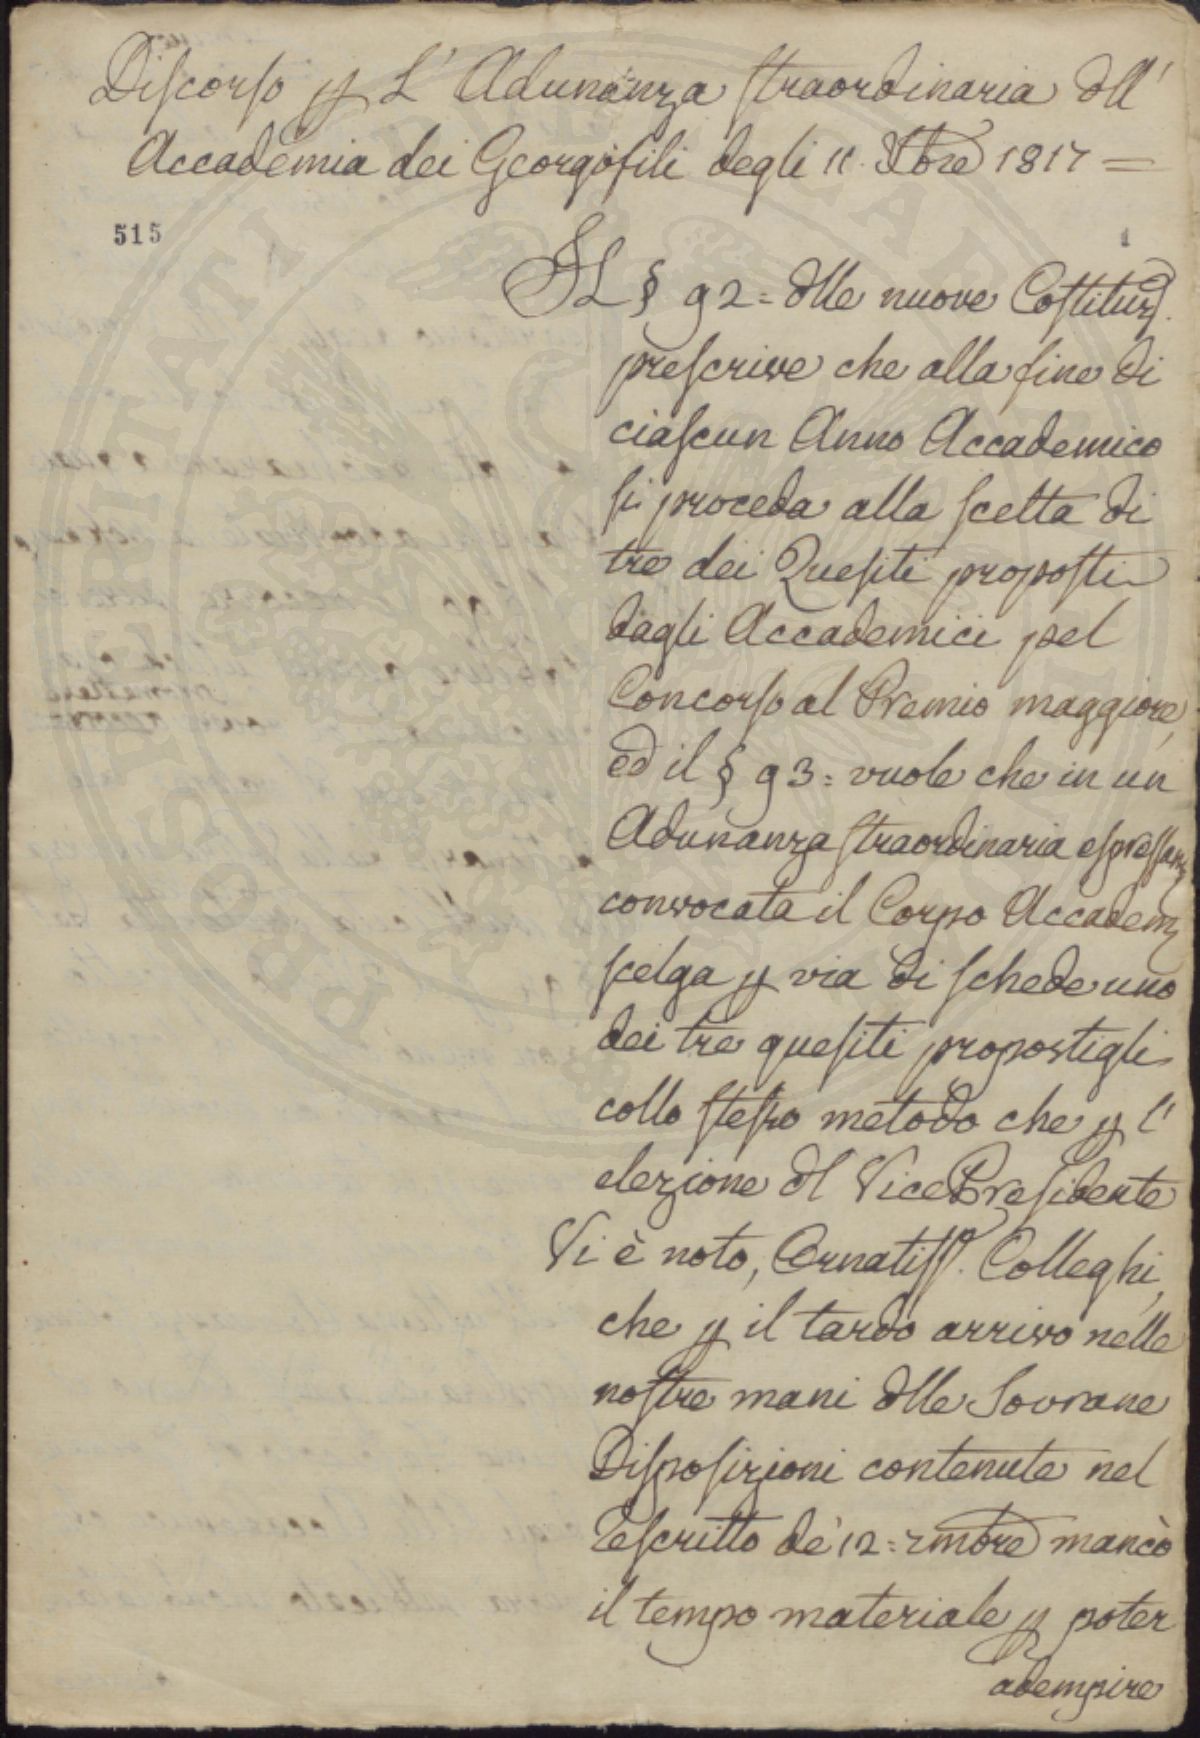 Discorso p L' Adunanza straordinaria dll'
Accademia dei Georgofili degli 11. Xbre 1817 =
515
1
IL § 92 = dlle nuove Costituz.
prescrive che alla fine di
ciascun Anno Accademico
si proceda alla scelta di
tre dei Quesiti proposti
dagli Accademici pel
Concorso al Premio maggiore,
ed il § 93 = vuole che in un
Adunanza straordinaria espressam
convocata il Corpo Accadem
scelga p via di schede uno
dei tre quesiti propostigli
collo stesso metodo che p l'
elezione dl Vice Presidente
Vi è noto, Ornatiss. Colleghi,
che p il tardo arrivo nelle
nostre mani dlle Sovrane
Disposizioni contenute nel
Rescritto de' 12 = 7mbre mancò
il tempo materiale p poter
adempire
PROSPERITATI PUBLICAE